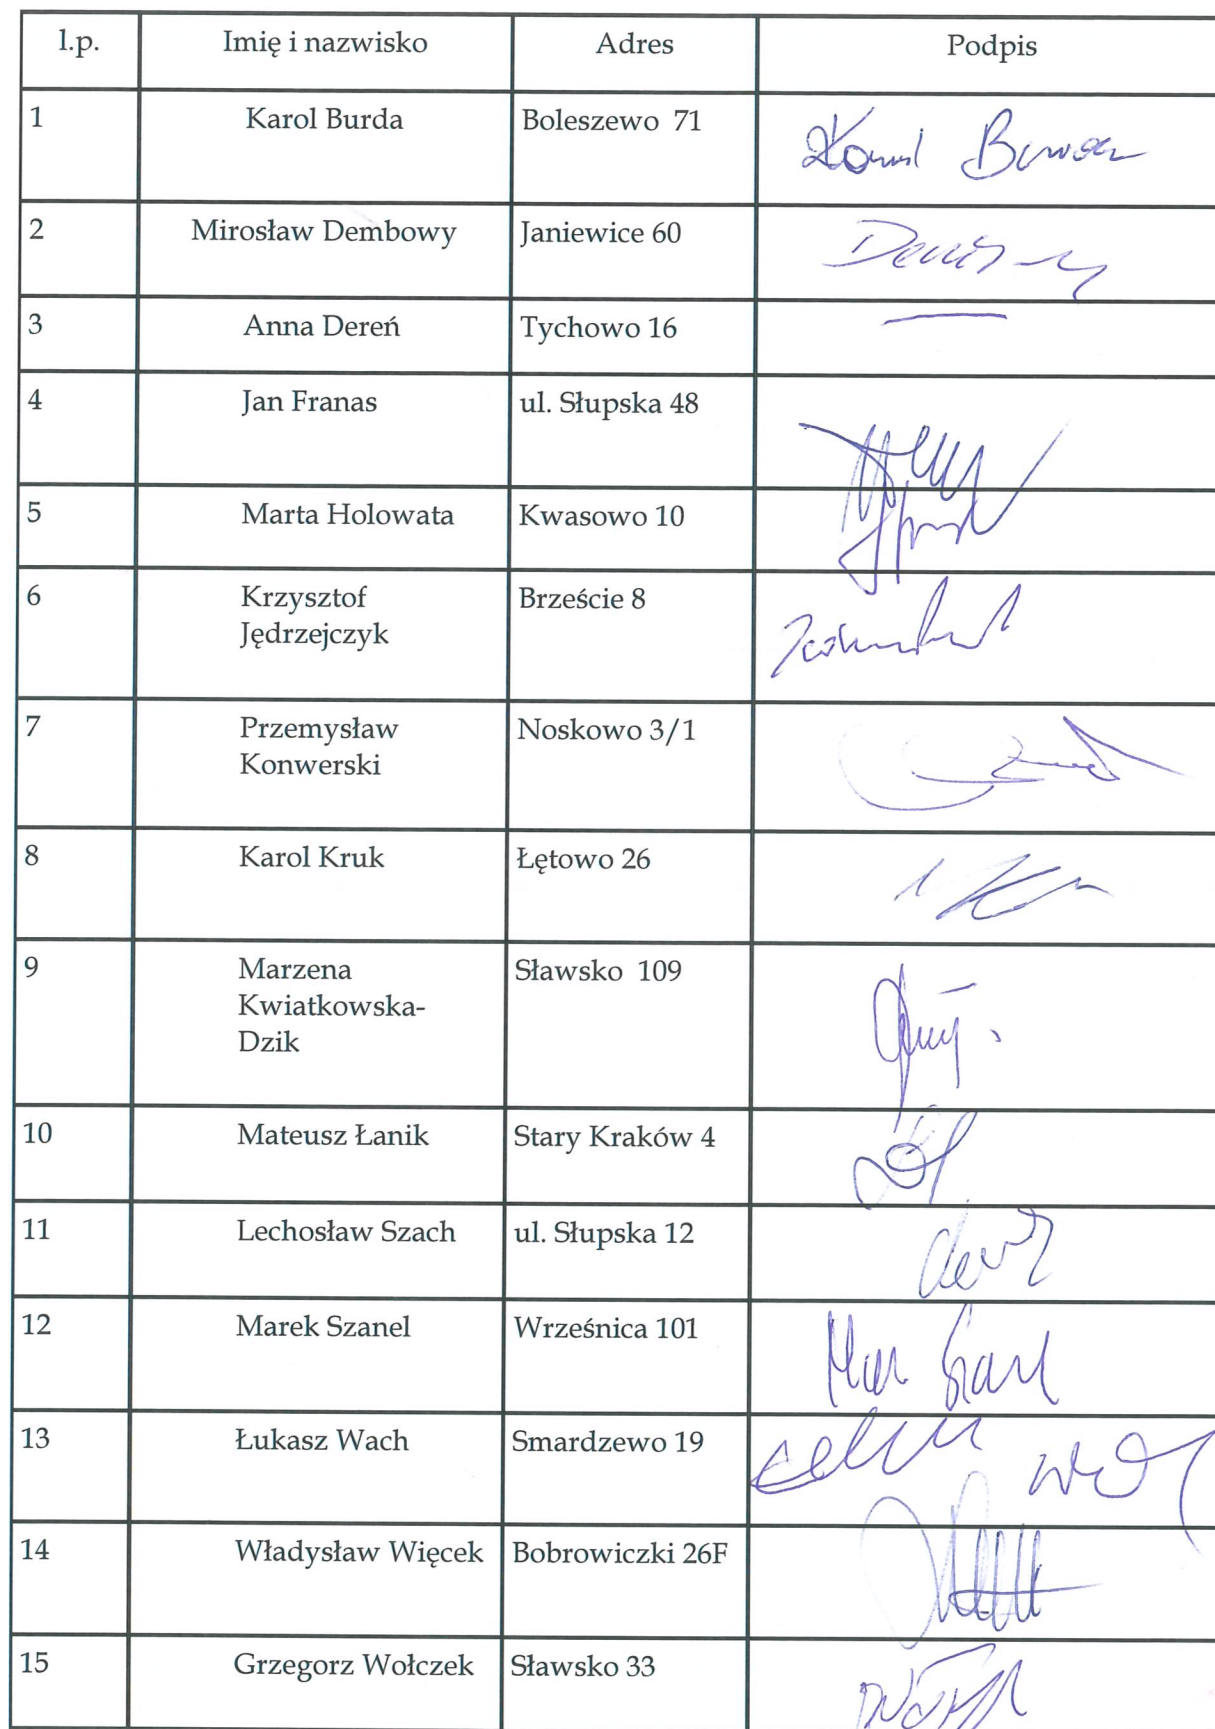 l.p. Imię i nazwisko Adres Podpis
1 Karol Burda Boleszewo 71
2 Mirosław Dembowy Janiewice 60
3 Anna Dereń Tychowo 16
4 Jan Franas ul. Słupska 48
5 Marta Holowata Kwasowo 10
6 Krzysztof Brzeście 8
Jędrzejczyk
7 Przemysław Noskowo 3/1
Konwerski
8 Karol Kruk Łętowo 26
9 Marzena Sławsko 109
Kwiatkowska-
Dzik
10 Mateusz Łanik Stary Kraków 4
11 Lechosław Szach ul. Słupska 12
12 Marek Szanel Wrześnica 101
13 Łukasz Wach Smardzewo 19
14 Władysław Więcek Bobrowiczki 26F
15 Grzegorz Wołczek Sławsko 33